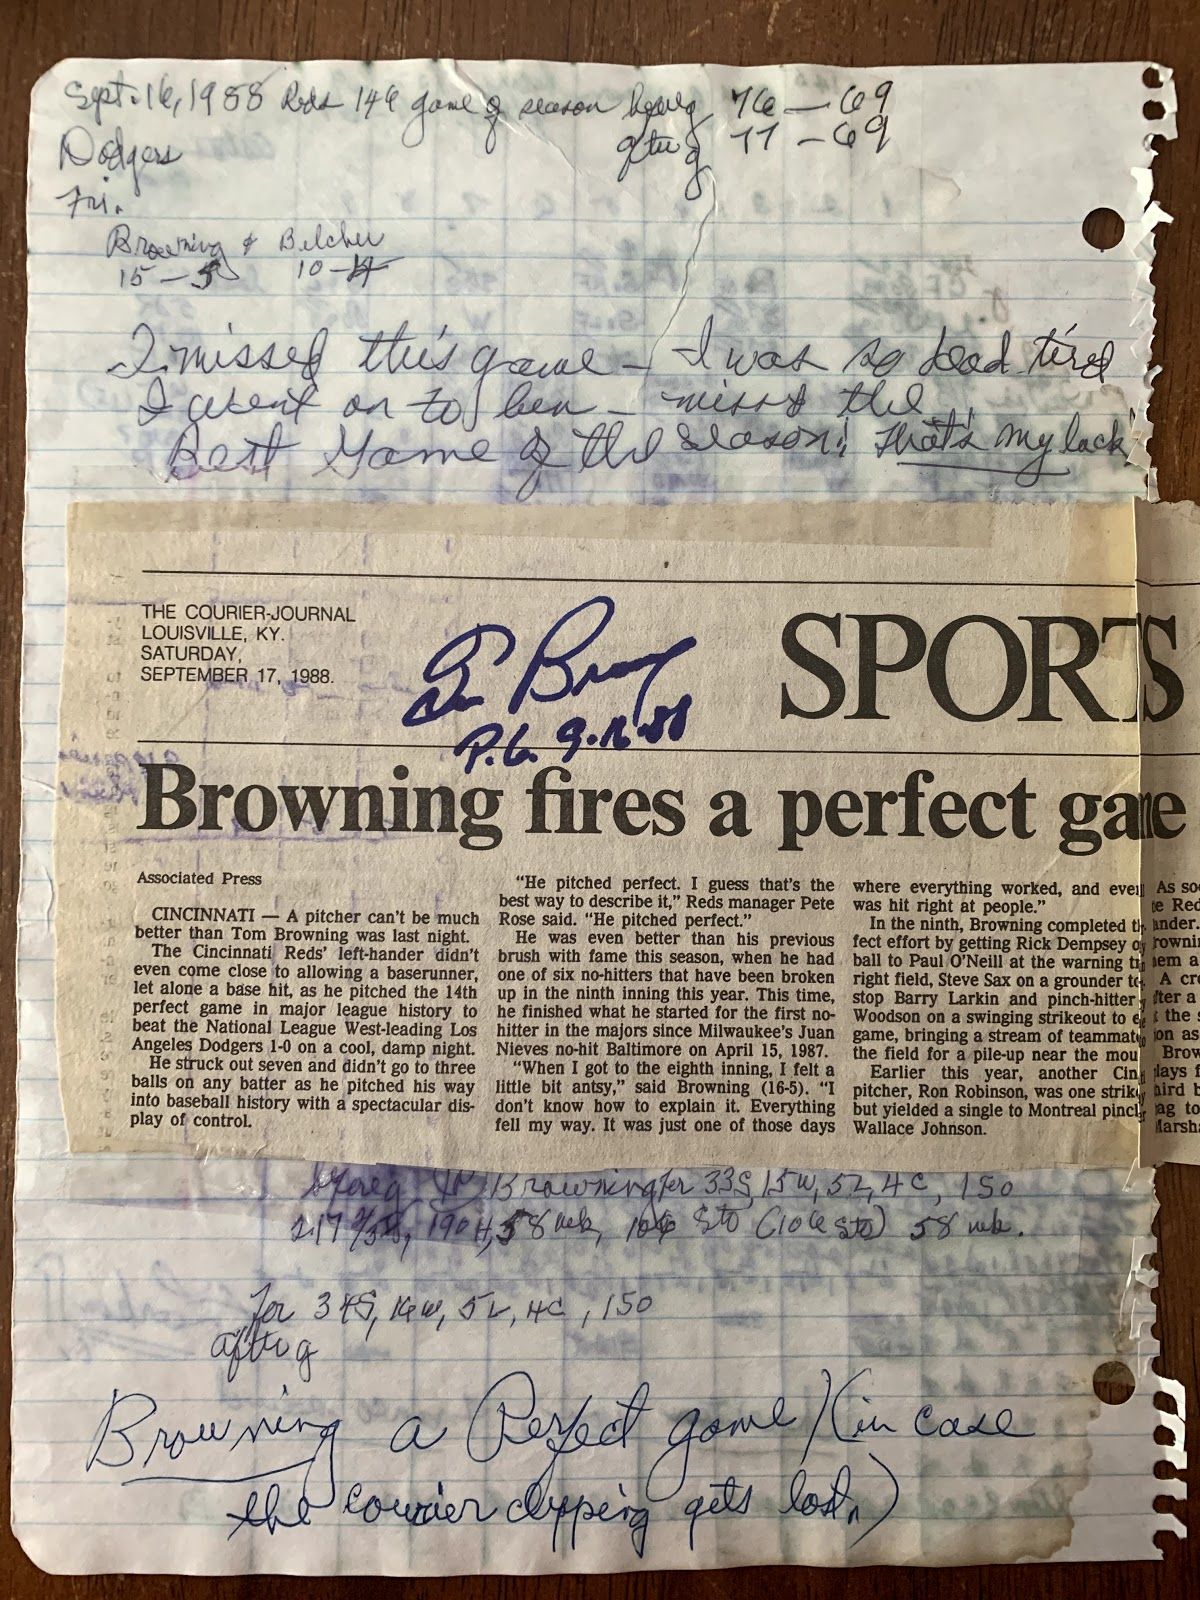 Sept. 16, 1988 Reds 146 game of season before g 76 - 69
Dodgers after g 77 - 69
Fri.
Browning & Belcher
15 - 5 10 - 4
I missed this game - I was so dead tired
I went on to bed - missed the
Best Game of the season! that's my luck
THE COURIER-JOURNAL
LOUISVILLE, KY.
SATURDAY,
SEPTEMBER 17, 1988.
Tom Browning
P.G. 9-16-88
SPORTS
Browning fires a perfect game
Associated Press
CINCINNATI — A pitcher can't be much
better than Tom Browning was last night.
The Cincinnati Reds' left-hander didn't
even come close to allowing a baserunner,
let alone a base hit, as he pitched the 14th
perfect game in major league history to
beat the National League West-leading Los
Angeles Dodgers 1-0 on a cool, damp night.
He struck out seven and didn't go to three
balls on any batter as he pitched his way
into baseball history with a spectacular dis-
play of control.
"He pitched perfect. I guess that's the
best way to describe it," Reds manager Pete
Rose said. "He pitched perfect."
He was even better than his previous
brush with fame this season, when he had
one of six no-hitters that have been broken
up in the ninth inning this year. This time,
he finished what he started for the first no-
hitter in the majors since Milwaukee's Juan
Nieves no-hit Baltimore on April 15, 1987.
"When I got to the eighth inning, I felt a
little bit antsy," said Browning (16-5). "I
don't know how to explain it. Everything
fell my way. It was just one of those days
where everything worked, and
was hit right at people."
In the ninth, Browning completed
fect effort by getting Rick Dempsey
ball to Paul O'Neill at the warning
right field, Steve Sax on a grounder
stop Barry Larkin and pinch-hitter
Woodson on a swinging strikeout to
game, bringing a stream of
the field for a pile-up near the
Earlier this year, another
pitcher, Ron Robinson, was one
but yielded a single to Montreal
Wallace Johnson.
As
Red
A
after a
the
as
Brow
to
before g Browning for 33S, 15W, 5L, 4C, 150
217 2/3, 190H, 58 wk, 106 Sto (106 Sto) 58 wk.
for 34S, 16W, 5L, 4C, 150
after g
Browning a Perfect game (in case
the courier clipping gets lost)